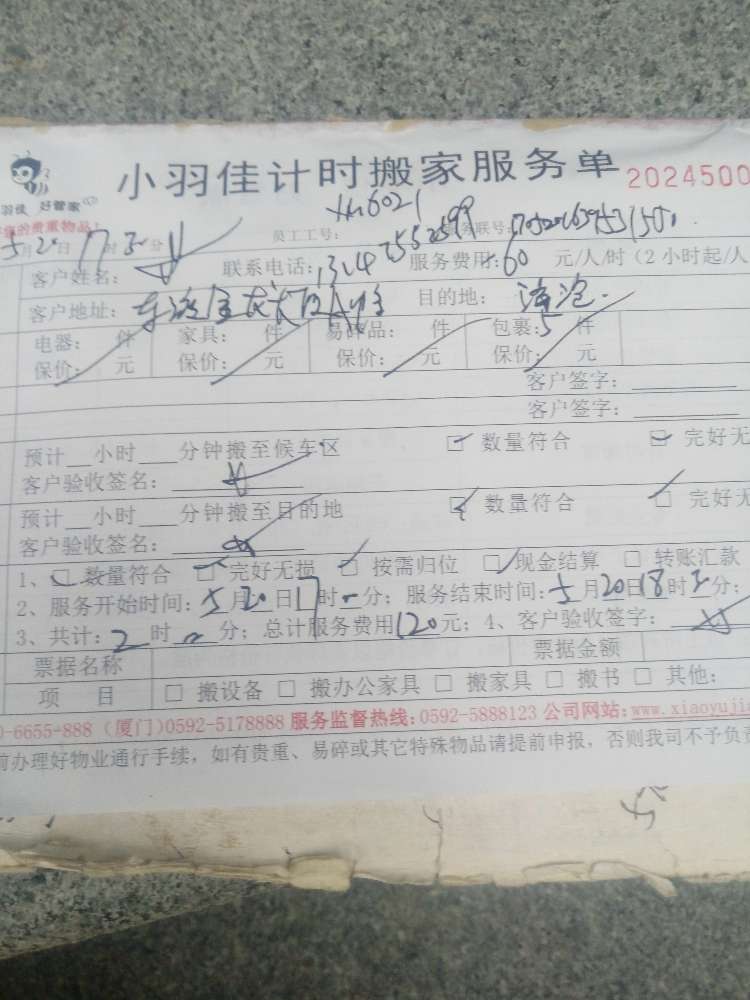 小羽佳计时搬家服务单 2024500
好管家
的贵重物品!
员工工号: 务联号:
5月20日17时 分
客户姓名: 联系电话: 服务费用: 60 元/人/时(2小时起/人
客户地址: 目的地:
电器: 件 家具: 件 易碎品: 件 包裹:5件
保价: 元 保价: 元 保价: 元 保价: 元
客户签字:
客户签字:
预计__小时___分钟搬至候车区 数量符合 完好无
客户验收签名:
预计__小时___分钟搬至目的地 数量符合 完好无
客户验收签名:
1、 数量符合 完好无损 按需归位 现金结算 □ 转账汇款
2、服务开始时间:5月20日17时 分;服务结束时间:5月20日18时 分;
3、共计:2时 分;总计服务费用120元;4、客户验收签字:
票据名称 票据金额
项 目 □ 搬设备 □ 搬办公家具 □ 搬家具 □ 搬书 □ 其他:
0-6655-888(厦门)0592-5178888 服务监督热线:0592-5888123 公司网站:www.xiaoyujia
前办理好物业通行手续,如有贵重、易碎或其它特殊物品请提前申报,否则我司不予负责